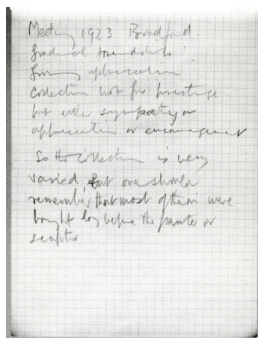 Meeting 1923 Bradford.
gradual friendship
growing appreciation
collection not for prestige
but either sympathy or
appreciation or encouragement
So the collection is very
varied, but one should
remember that most of them were
bought long before the painter or
sculptor